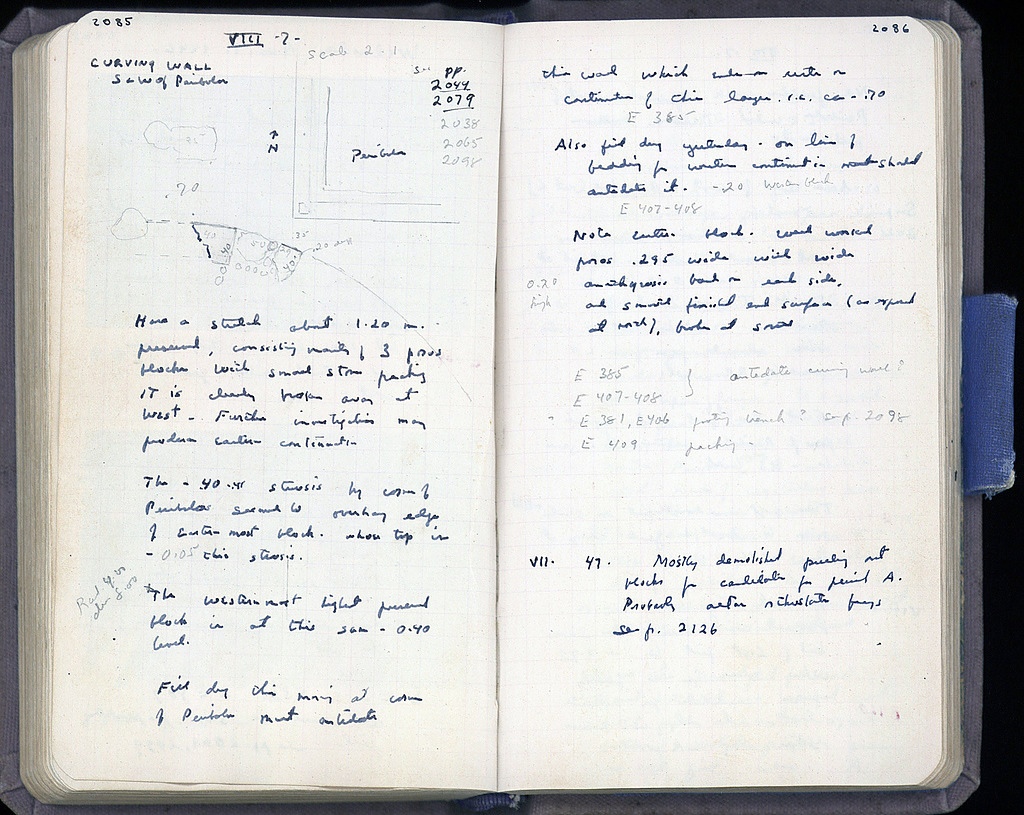 2085
VIII -7-
Scale 2 - 1
CURVING WALL
S & W of Peribolos
see pp.
2044
2079
2038
2065
2098
N
Peribolos
.95
.70
.35
.40
.40
.50
.40
Have a stretch about 1.20 m.
preserved, consisting mainly of 3 poros
blocks with small stone packing
It is clearly broken away at
West - Further investigation may
produce eastern continuation
The - .40 sterosis by corner of
Peribolos seemed to overhang edge
of Eastern most block. whose top is
- 0.05 this sterosis.
Rad 4.00
diam 8.00
x The westernmost highest preserved
block is at this same - 0.40
level.
Fill dug this morning at corner
of Peribolos must antedate
2086
this wall which under
continuation of this larger. r.c. ca - .70
E 385
Also fill dug yesterday - on line of
bedding for western continuation should
antedate it. - .20 Western block
E 407-408
Note center block. well worked
poros .295 wide with wide
anathyrosis band on each side,
and smooth finished end surface (as exposed
at north), broken at south
0.20
high
E 385 } antedate curving wall?
E 407-408
E 381, E406 footing trench? see p. 2098
E 409 packing -
VII. 47. Mostly demolished pulling out
blocks for candidates for period A.
Probably
See p. 2126